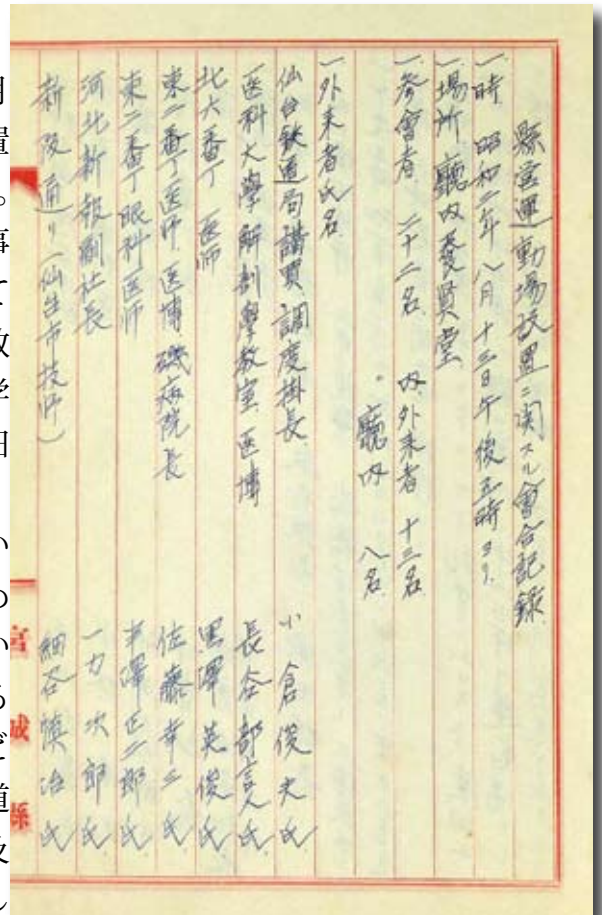 縣営運動場設置ニ関スル會合記録
一時 昭和二年八月十三日午後五時ヨリ
一場所 廳内養賢堂
一参會者 二十二名 内外来者 十三名
廳内 八名
一外来者氏名
仙台鉄道局購買調度掛長 小倉俊夫氏
医科大學解剖學教室 医博 長谷部言人氏
北六番丁 医師 黒澤英俊氏
東二番丁医師 医博 磯病院長 佐藤幸三氏
東二番丁眼科医師 半澤正二郎氏
河北新報副社長 一力次郎氏
新坂通リ(仙台市技師) 細谷慎治氏
宮城縣